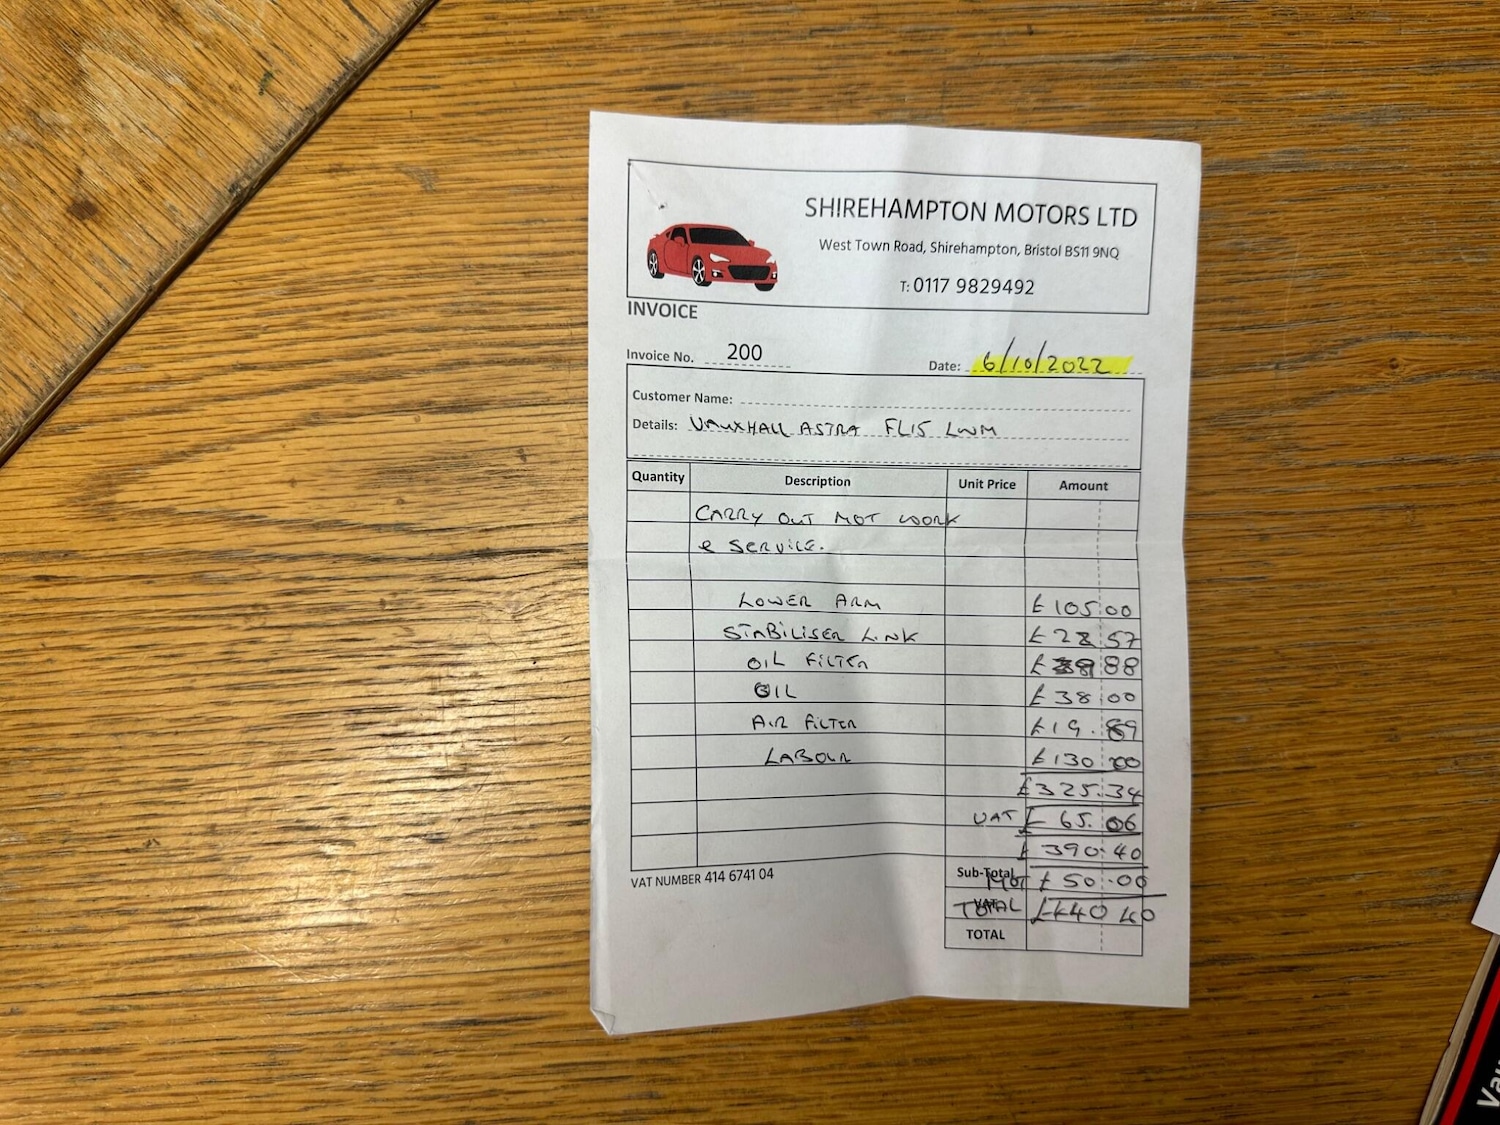 SHIREHAMPTON MOTORS LTD
West Town Road, Shirehampton, Bristol BS11 9NQ
T: 0117 9829492
INVOICE
Invoice No. 200
Date: 6/10/2022
Customer Name:
Details: VAUXHALL ASTRA FL15 LWM
Quantity Description Unit Price Amount
CARRY OUT MOT WORK
& SERVICE.
LOWER ARM £105.00
STABILISER LINK £28.57
OIL FILTER £ 88
OIL £38.00
AIR FILTER £19.89
LABOUR £130.00
£325.34
VAT £65.06
£390.40
Sub-Total
MOT £50.00
VAT
TOTAL £440.40
TOTAL
VAT NUMBER 414 6741 04